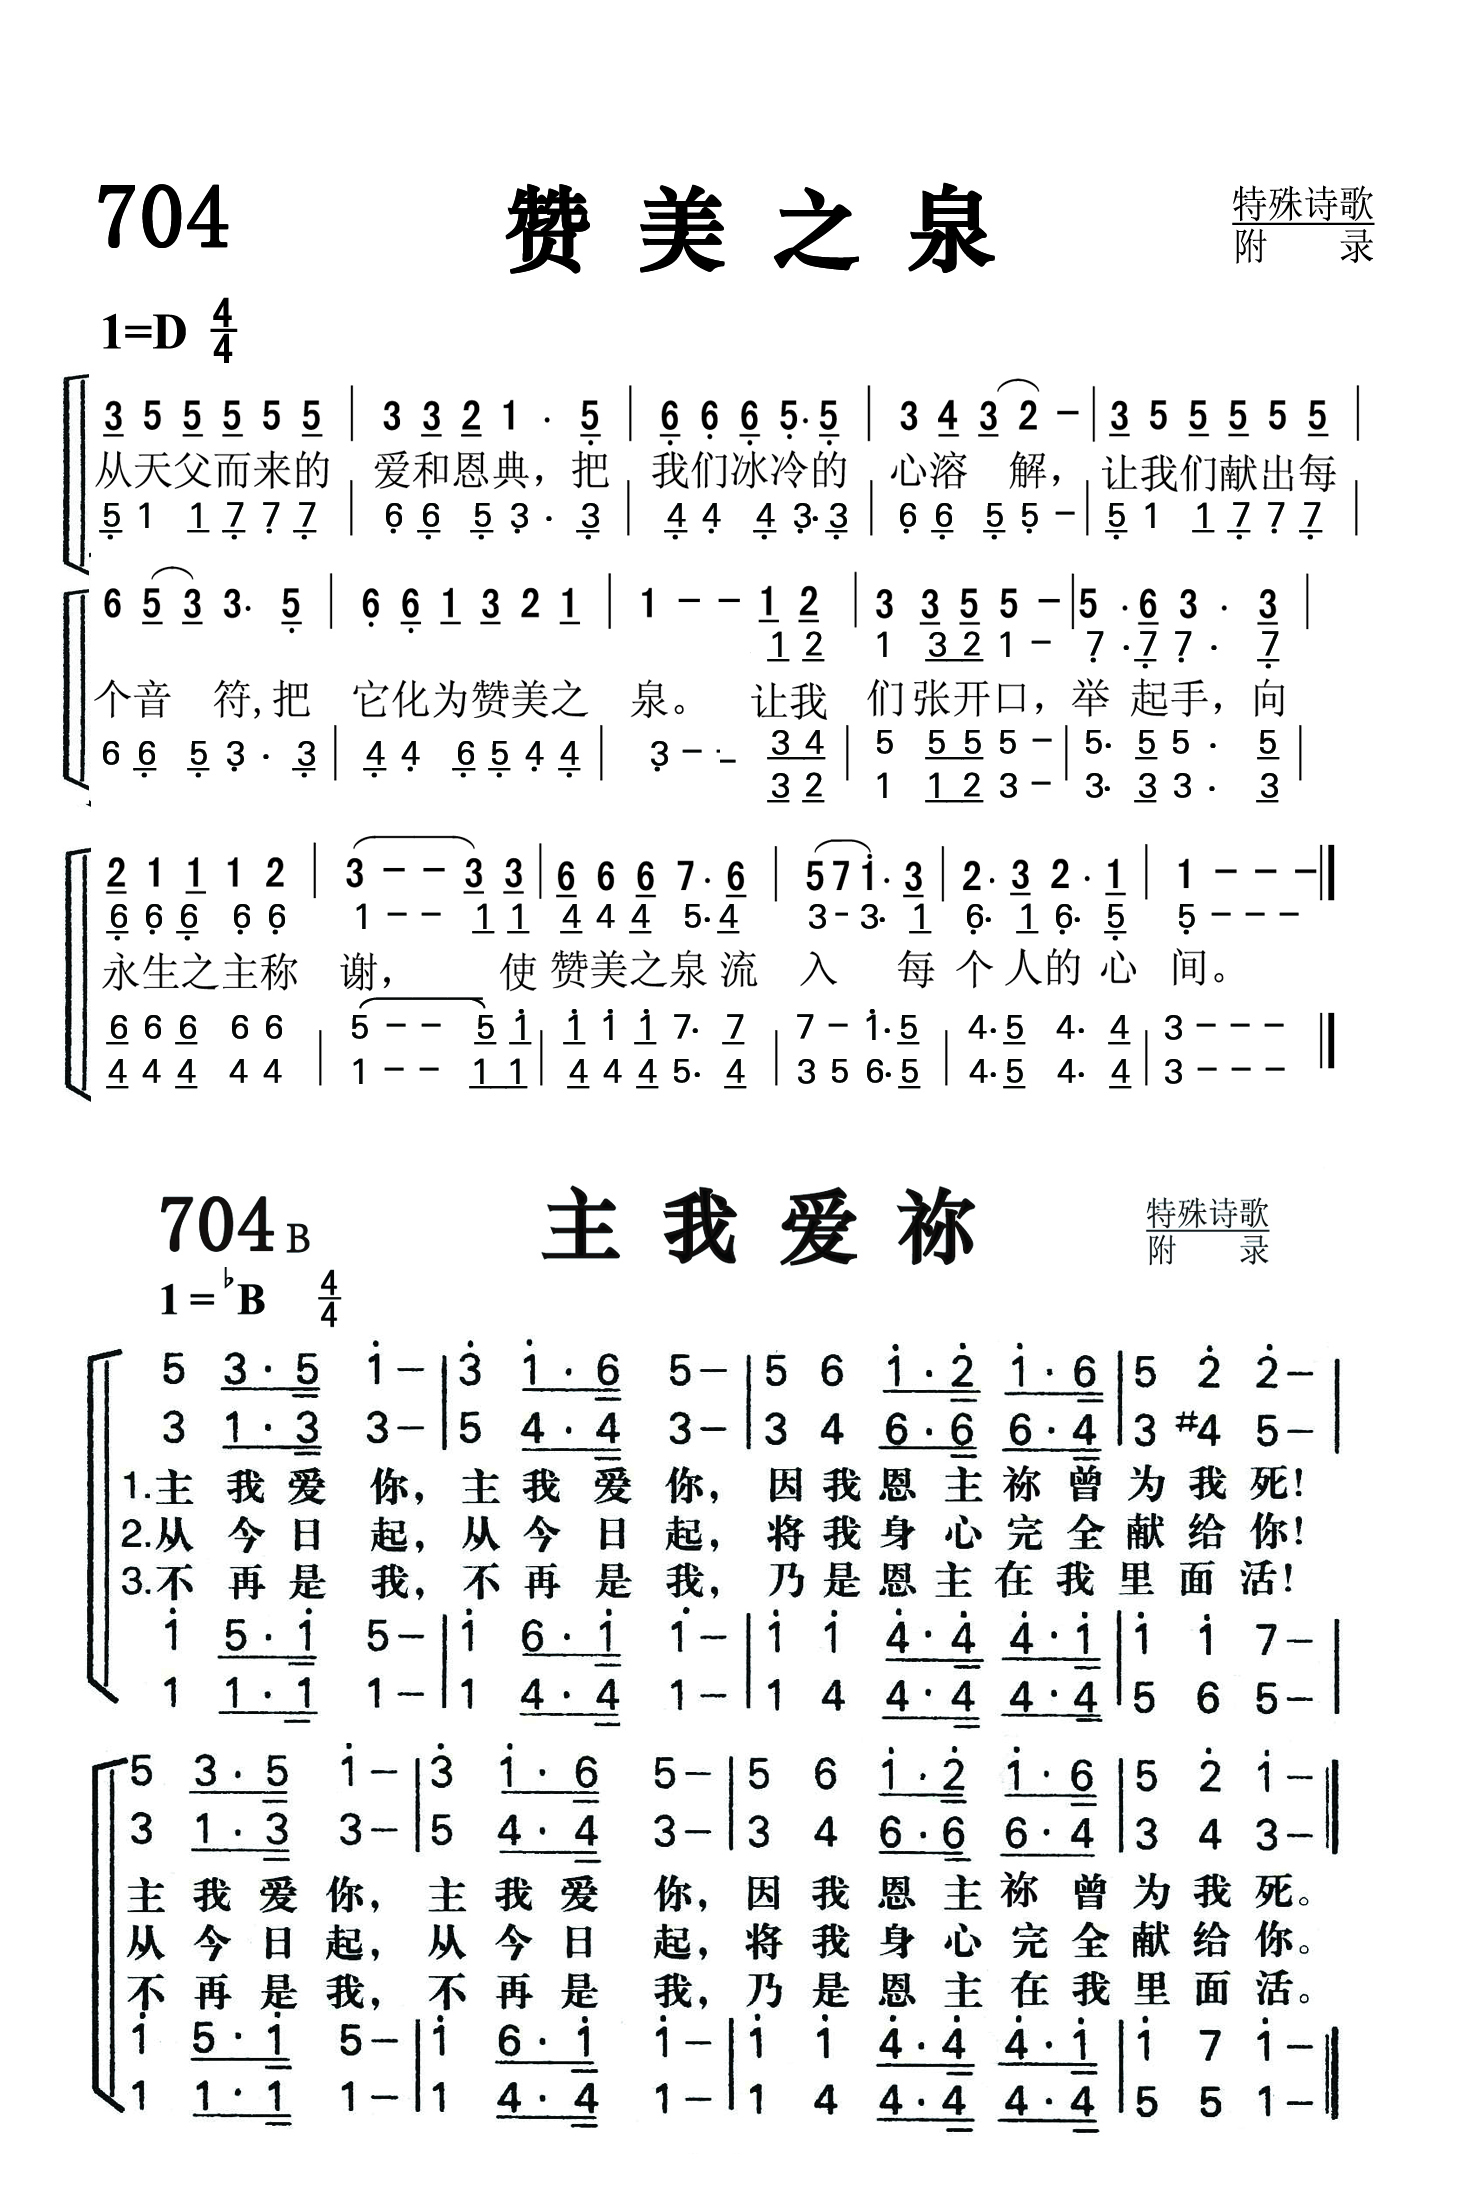 704 赞美之泉 特殊诗歌
附录
1=D 4/4
3 5 5 5 5 5 | 3 3 2 1 · 5 | 6 6 6 5· 5 | 3 4 3 2 － | 3 5 5 5 5 5 |
从天父而来的 爱和恩典，把 我们冰冷的 心溶 解，让我们献出每
5 1 1 7 7 7 | 6 6 5 3 · 3 | 4 4 4 3· 3 | 6 6 5 5 － | 5 1 1 7 7 7 |
6 5 3 3· 5 | 6 6 1 3 2 1 | 1 － － 1 2 | 3 3 5 5 － | 5 · 6 3 · 3 |
1 2 1 3 2 1 － 7 · 7 7 · 7
个音 符,把 它化为赞美之 泉。 让我 们张开口，举 起手，向
6 6 5 3 · 3 | 4 4 6 5 4 4 | 3 － － 3 4 | 5 5 5 5 － | 5· 5 5 · 5 |
3 2 1 1 2 3 － 3· 3 3 · 3
2 1 1 1 2 | 3 － － 3 3 | 6 6 6 7 · 6 | 5 7 1 · 3 | 2 · 3 2 · 1 | 1 － － －
6 6 6 6 6 1 － － 1 1 4 4 4 5· 4 3 － 3· 1 6· 1 6· 5 5 － － －
永生之主称 谢， 使 赞美之泉 流 入 每 个 人的 心 间。
6 6 6 6 6 | 5 － － 5 1 | 1 1 1 7· 7 | 7 － 1· 5 | 4· 5 4· 4 | 3 － － －
4 4 4 4 4 1 － － 1 1 4 4 4 5· 4 3 5 6· 5 4· 5 4· 4 3 － － －
704 B 主我爱祢 特殊诗歌
附录
1=♭B 4/4
5 3 · 5 1 － | 3 1 · 6 5 － | 5 6 1 · 2 1 · 6 | 5 2 2 － |
3 1 · 3 3 － 5 4 · 4 3 － 3 4 6 · 6 6 · 4 3 #4 5 －
1.主我爱你，主我爱你，因我恩主祢曾为我死！
2.从今日起，从今日起，将我身心完全献给你！
3.不再是我，不再是我，乃是恩主在我里面活！
1 5 · 1 5 － | 1 6 · 1 1 － | 1 1 4 · 4 4 · 1 | 1 1 7 － |
1 1 · 1 1 － 1 4 · 4 1 － 1 4 4 · 4 4 · 4 5 6 5 －
5 3 · 5 1 － | 3 1 · 6 5 － | 5 6 1 · 2 1 · 6 | 5 2 1 －
3 1 · 3 3 － 5 4 · 4 3 － 3 4 6 · 6 6 · 4 3 4 3 －
主我爱你，主我爱你，因我恩主祢曾为我死。
从今日起，从今日起，将我身心完全献给你。
不再是我，不再是我，乃是恩主在我里面活。
1 5 · 1 5 － | 1 6 · 1 1 － | 1 1 4 · 4 4 · 1 | 1 7 1 －
1 1 · 1 1 － 1 4 · 4 1 － 1 4 4 · 4 4 · 4 5 5 1 －